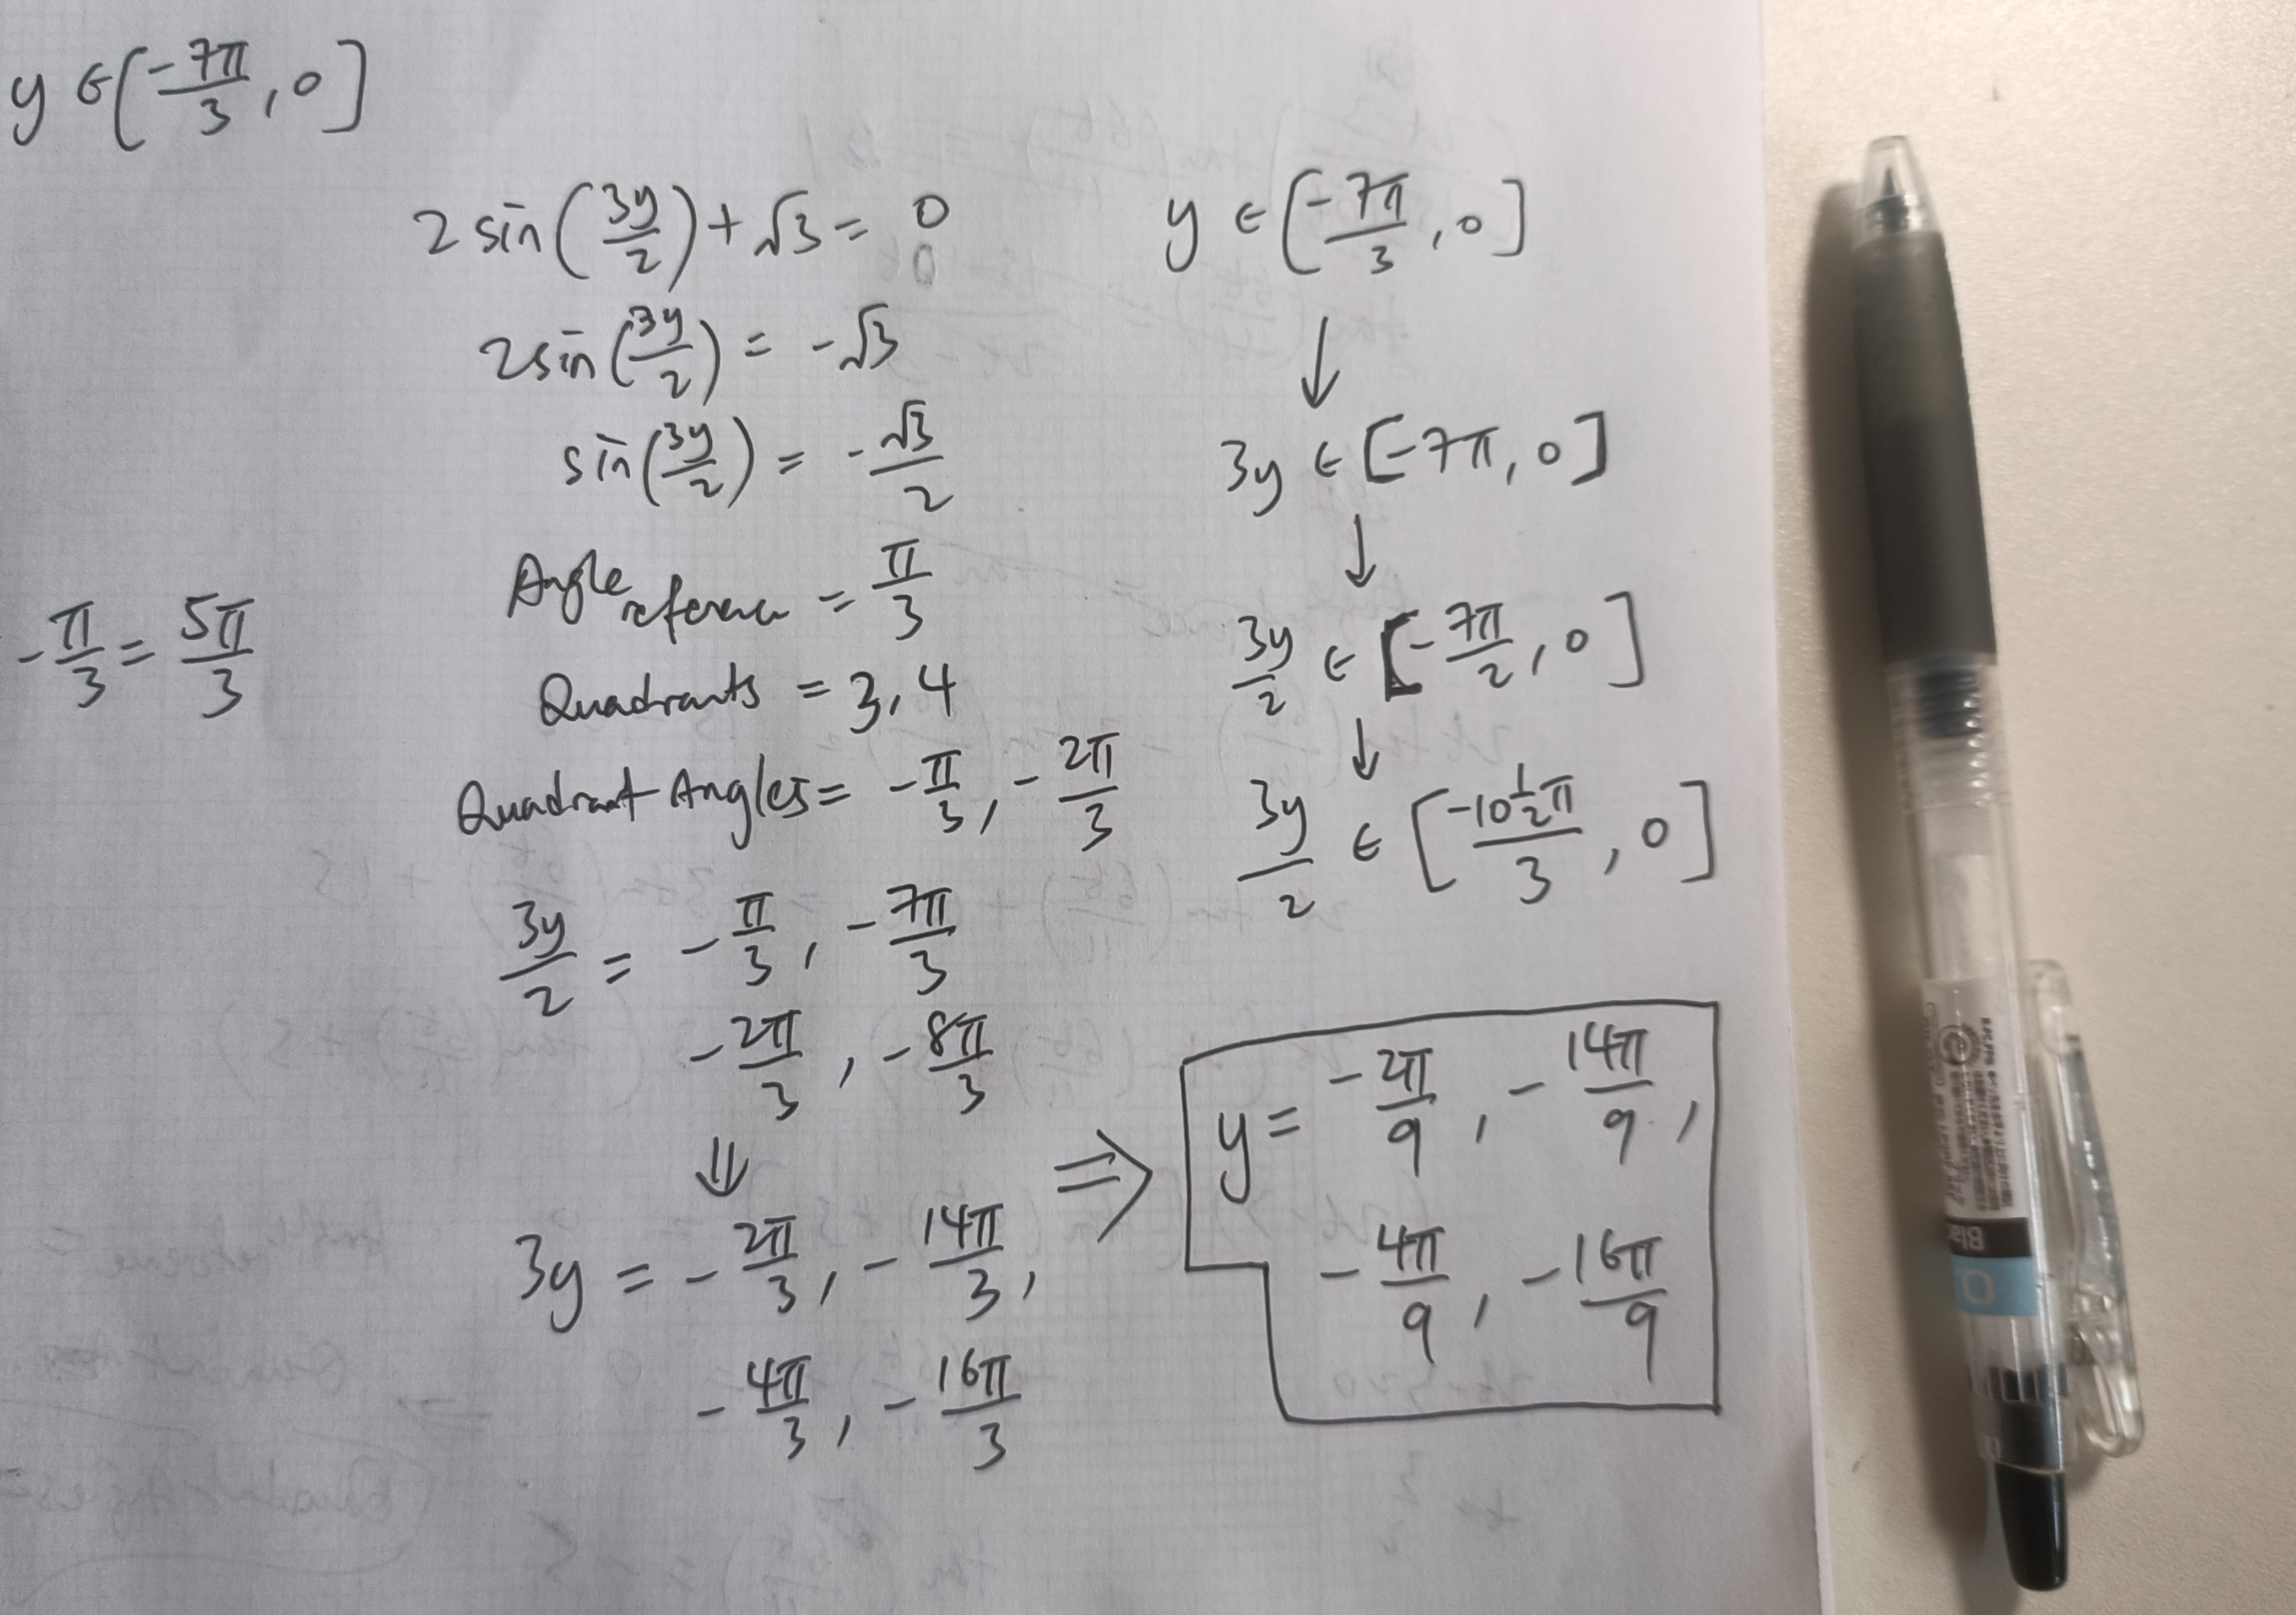 y ∈ [-7π/3, 0]
2 sin(3y/2) + √3 = 0
2sin(3y/2) = -√3
sin(3y/2) = -√3/2
Angle reference = π/3
Quadrants = 3, 4
Quadrant Angles = -π/3, -2π/3
-π/3 = 5π/3
3y/2 = -π/3, -7π/3
-2π/3, -8π/3
⇓
3y = -2π/3, -14π/3,
-4π/3, -16π/3
y ∈ [-7π/3, 0]
↓
3y ∈ [-7π, 0]
↓
3y/2 ∈ [-7π/2, 0]
↓
3y/2 ∈ [-10½π/3, 0]
⇒
y = -2π/9, -14π/9,
-4π/9, -16π/9